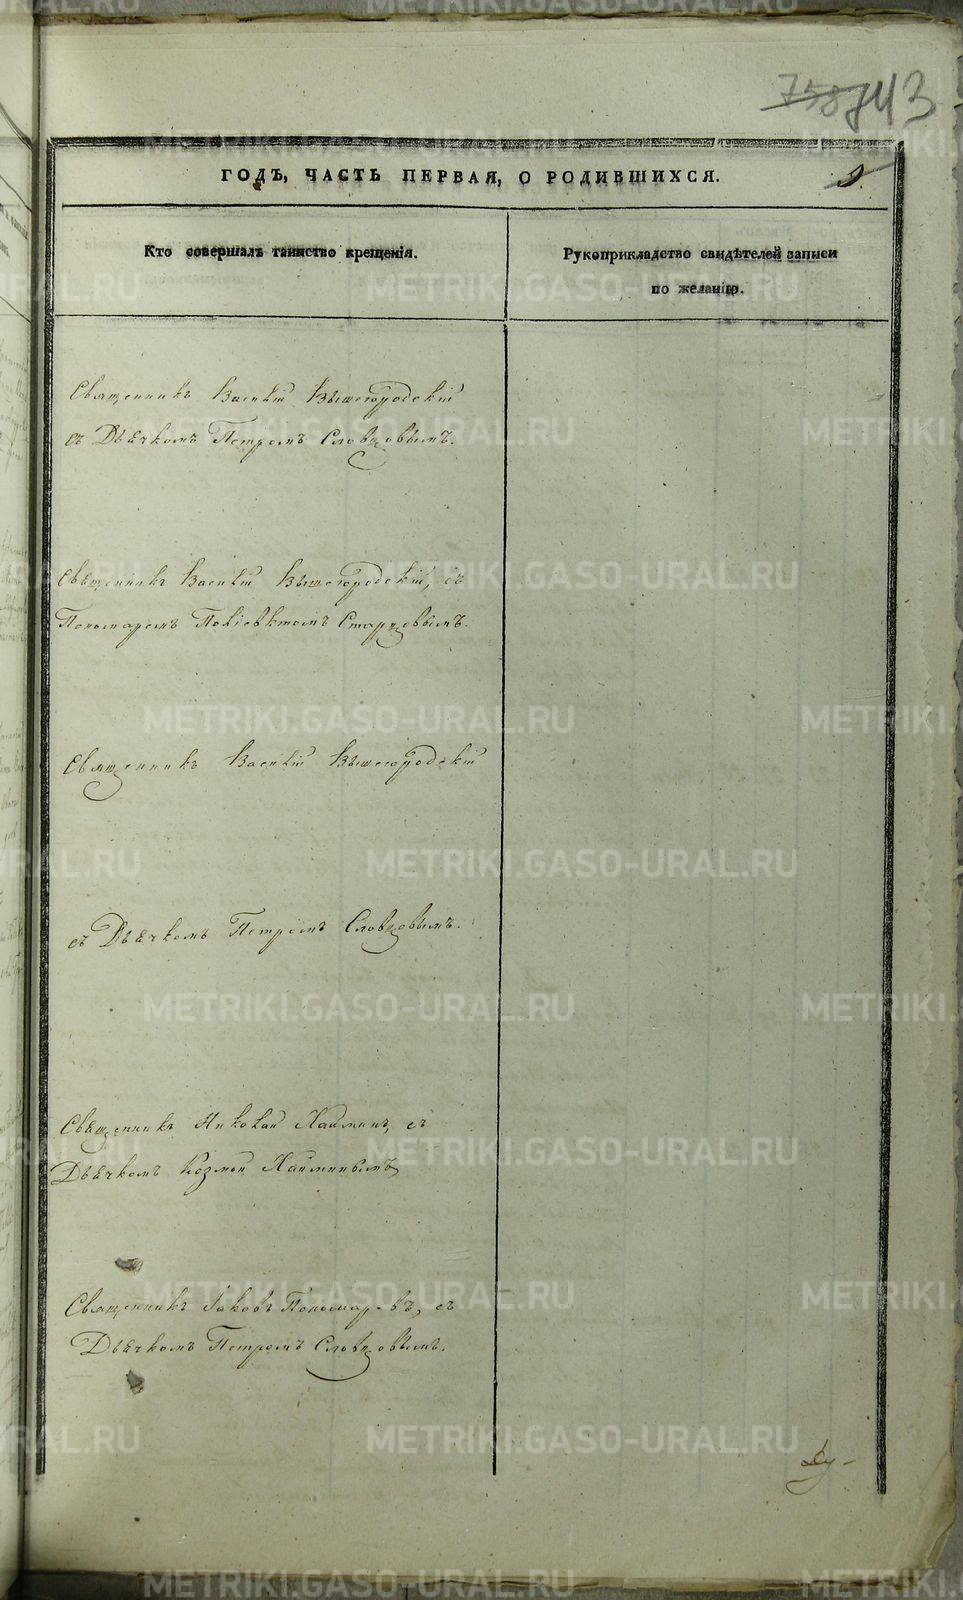 758 743
ГОДЪ, ЧАСТЬ ПЕРВАЯ, О РОДИВШИХСЯ.
Кто совершалъ таинство крещенія.
Рукоприкладство свидѣтелей записи
по желанію.
Священникъ Василій Вышегородскій
съ Дьячкомъ Петромъ Словцовымъ.
Священникъ Василій Вышегородскій, съ
Пономаремъ Поліевктомъ Старцовымъ.
Священникъ Василій Вышегородскій
съ Дьячкомъ Петромъ Словцовымъ.
Священникъ Николай Хлынинъ, съ
Дьячкомъ Козмой
Священникъ Іаковъ Пономаревъ, съ
Дьячкомъ Петромъ Словцовымъ.
METRIKI.GASO-URAL.RU